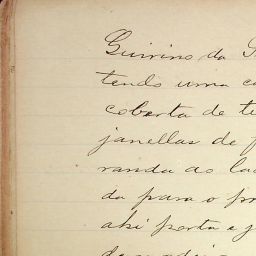 Quirino da
tendo uma ca
coberta de te
janellas de f
randa ao la
da para o pr
ahi porta e j